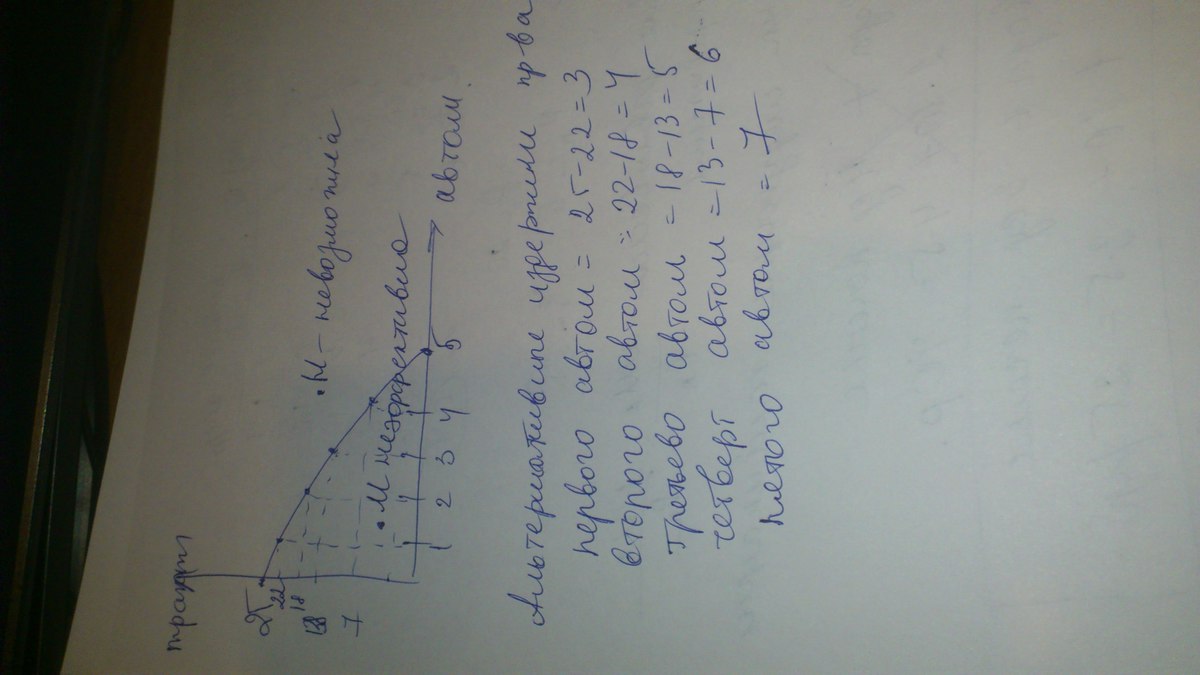 25
22
18
13
7
• М - невозможна
• М неэффективно
1 2 3 4 5
автом
Альтернативные издержки пр-ва
первого автом = 25-22=3
второго автом = 22-18=4
Третьего автом = 18-13=5
четверт автом =13-7=6
пятого автом = 7